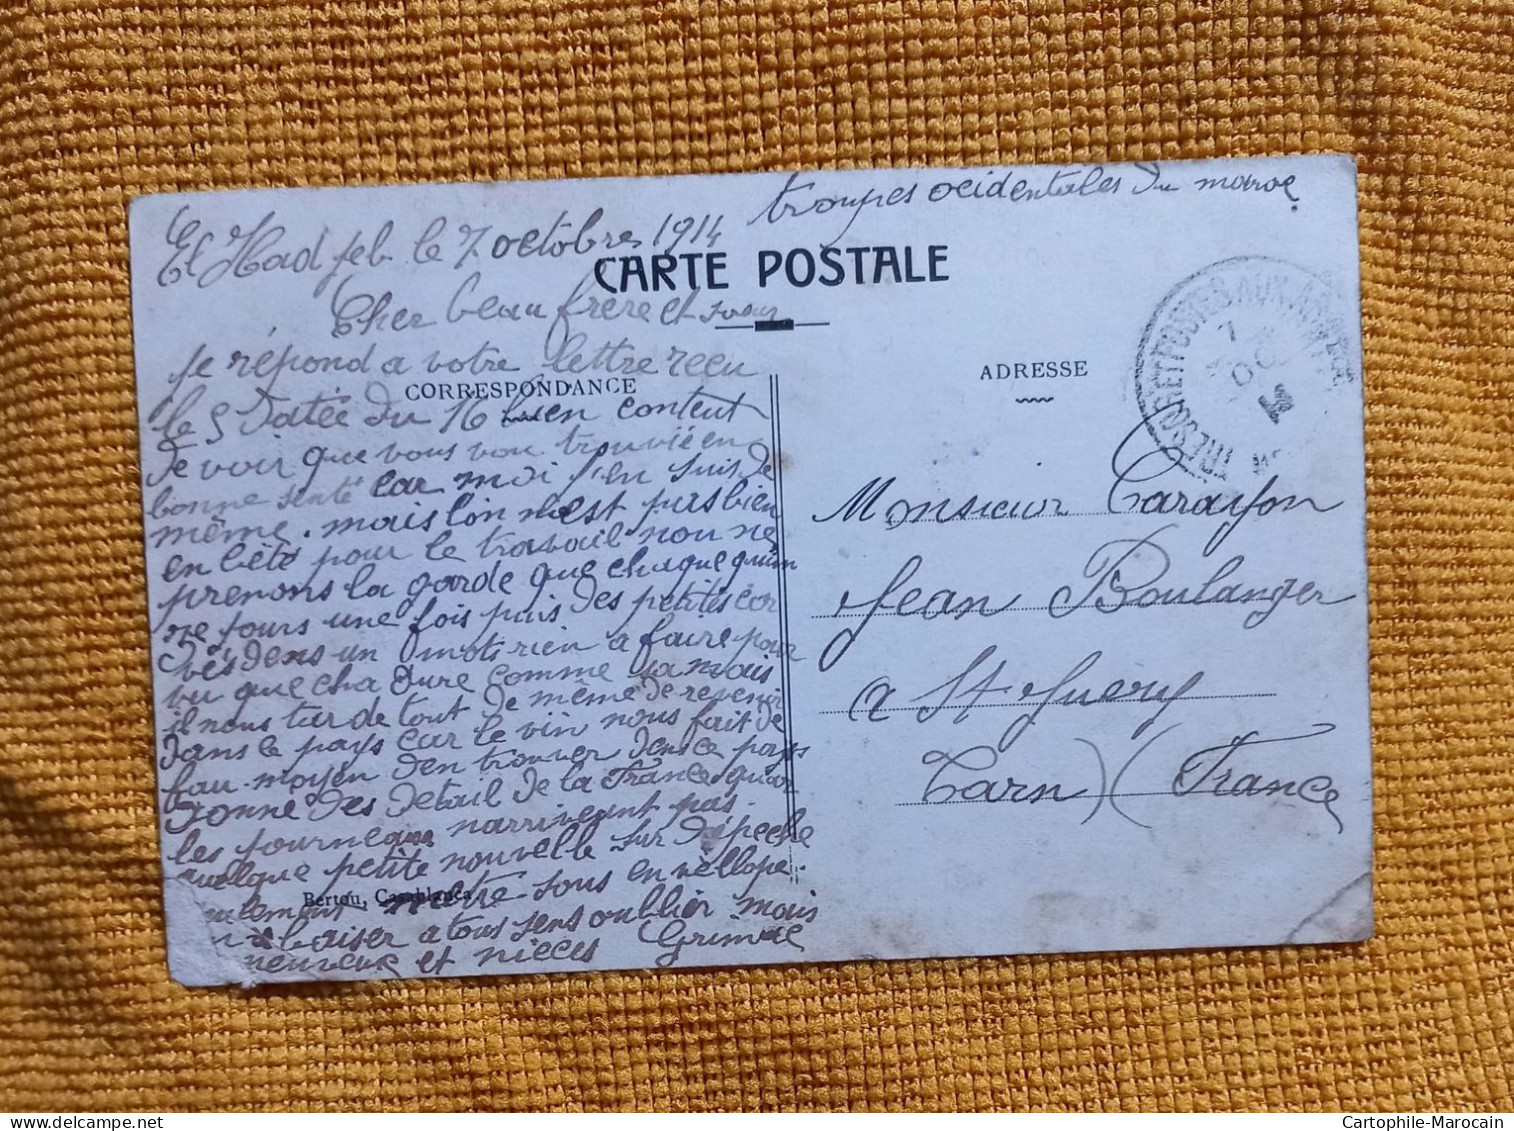 troupes ocidentales du maroc.
El Hadjeb le 7 octobres 1914
CARTE POSTALE
Cher beau frere et soeur
je répond a votre lettre recu
CORRESPONDANCE
le 5 datée du 16 bien content
de voir que vous vou trouvié en
bonne senté car moi j'en suis de
même. mais lon n'est pas bien
en bété pour le travail nou ne
prenons la garde que chaque quim
ze jours une fois puis des petites cor
vés dens un mots rien a faire pour
vu que cha dure comme sa mais
il nous tarde tout de même de revenir
dans le pays car le vin nous fait de
fau moyen den trouver dens ce pays
donne des detail de la France quar
les journeaue narrivent pas.
quelque petite nouvelle sur dépeche
mettre sous envellope.
Bertou, Casablanca
baiser a tous sens oublier mais
neuveux et nieces Grimal
ADRESSE
TRESOR ET POSTES AUX ARMEES
7
OC
14
Monsieur Tarayon
Jean Boulanger
a St Juery
Tarn) (France
Cartophile-Marocain